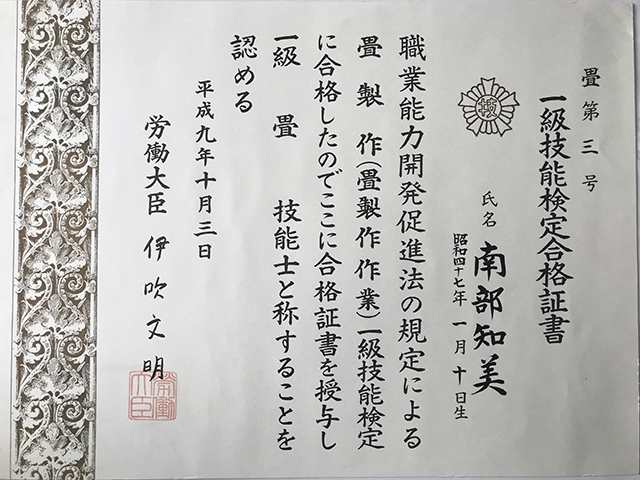 畳第三号
一級技能検定合格証書
氏名 南部知美
昭和四十七年 一月十日生
職業能力開発促進法の規定による
畳製作(畳製作作業)一級技能検定
に合格したのでここに合格証書を授与し
一級 畳 技能士と称することを
認める
平成九年十月三日
労働大臣 伊吹文明
労働
大臣